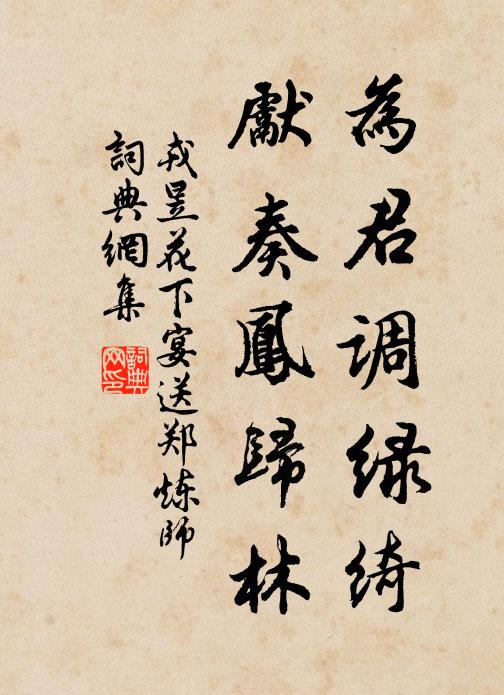 為君调绿綺
獻奏鳳歸林
戎昱花下宴送郑炼師
詞典網集
詞典网印